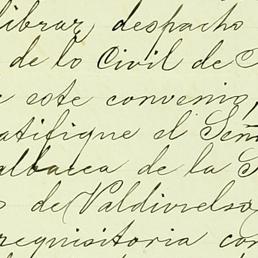 librar despacho
de lo Civil de
este convenio,
ratifique el Señ
albacea de la
de Valdivielso
requisitoria con